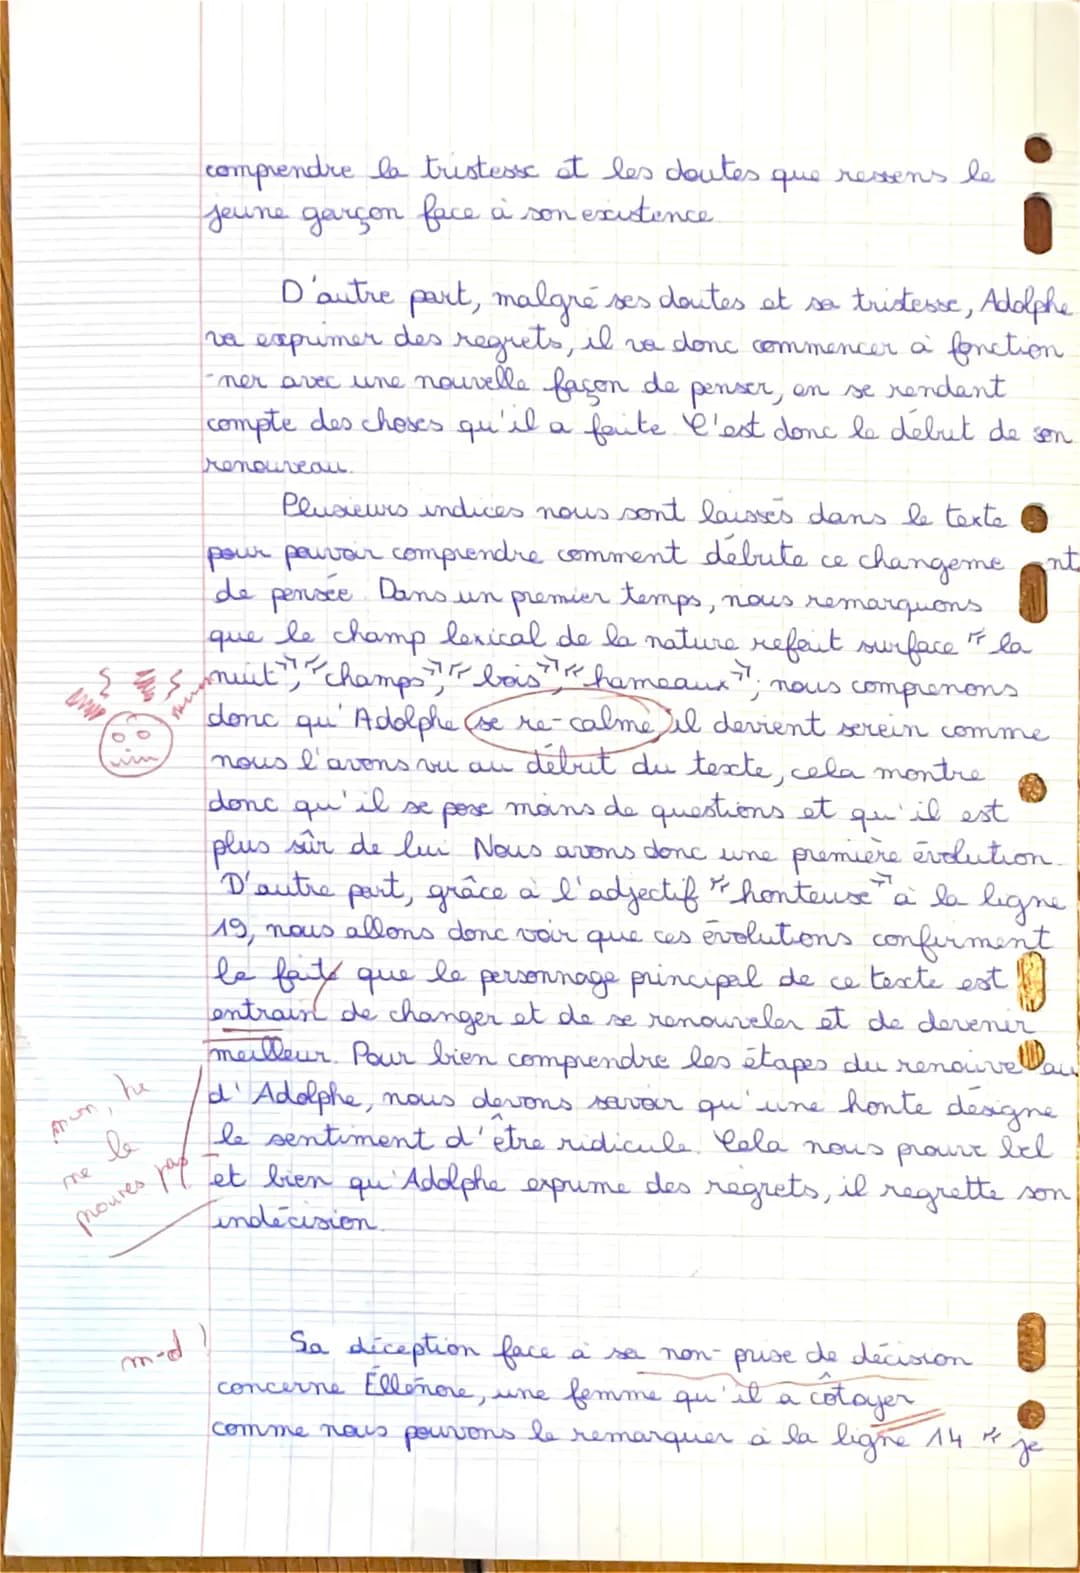 comprendre la tristesse et les doutes que ressens le
jeune garçon face à son existence.
D'autre part, malgré ses doutes et sa tristesse, Adolphe
va exprimer des regrets, il va donc commencer à fonction
-ner avec une nouvelle façon de penser, en se rendant
compte des choses qu'il a faite. C'est donc le début de son
renouveau.
Plusieurs indices nous sont laissés dans le texte
pour pouvoir comprendre comment débute ce changement
de pensée. Dans un premier temps, nous remarquons
que le champ lexical de la nature refait surface "la
nuit", "champs", "bois", "hameaux"; nous comprenons
donc qu'Adolphe se re-calme il devient serein comme
nous l'avons vu au début du texte, cela montre
donc qu'il se pose moins de questions et qu'il est
plus sûr de lui. Nous avons donc une première évolution.
D'autre part, grâce à l'adjectif "honteuse" à la ligne
19, nous allons donc voir que ces évolutions confirment
le fait que le personnage principal de ce texte est
entrain de changer et de se renouveler et de devenir
meilleur. Pour bien comprendre les étapes du renouveau
d'Adolphe, nous devons savoir qu'une honte désigne
le sentiment d'être ridicule. Cela nous prouve bel
et bien qu'Adolphe exprime des regrets, il regrette son
indécision.
non, tu
ne le
prouves pas
m-d !
Sa déception face à sa non-prise de décision
concerne Éllénore, une femme qu'il a côtoyer
comme nous pouvons le remarquer à la ligne 14 "je